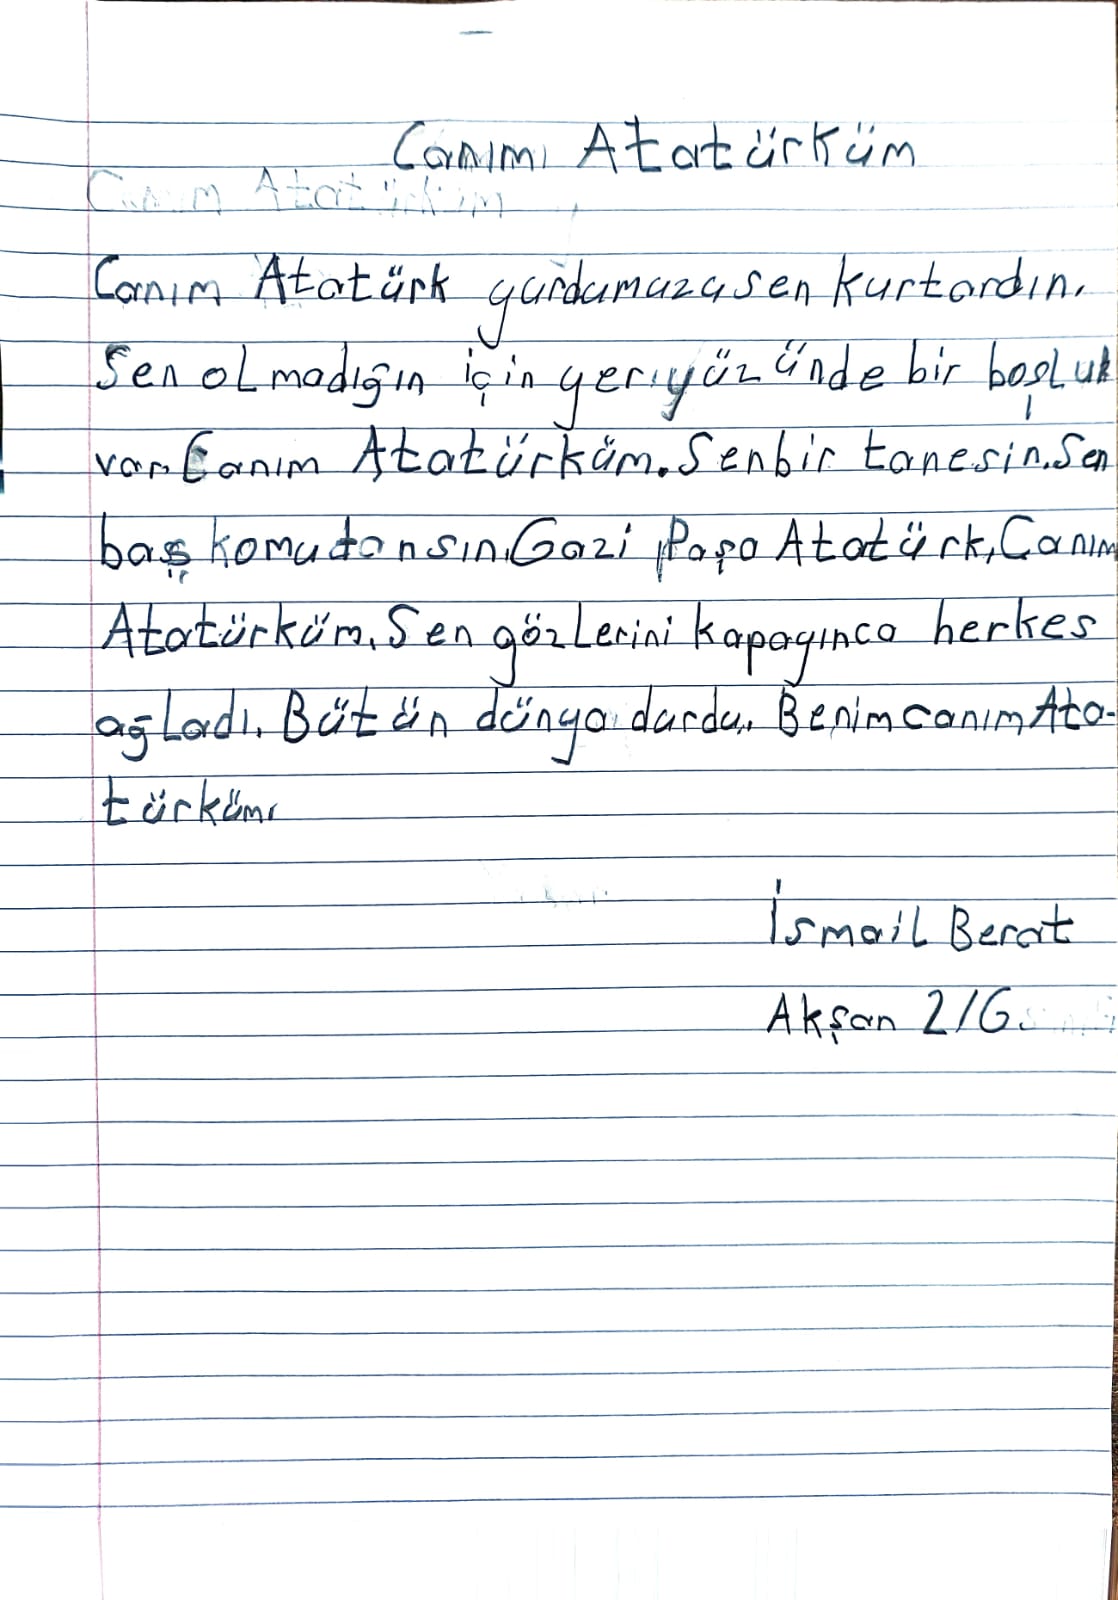 Canım Atatürküm
Canım Atatürküm
Canım Atatürk yurdumuzu sen kurtardın.
Sen olmadığın için yeryüzünde bir boşluk
var. Canım Atatürküm. Sen bir tanesin. Sen
baş komutansın. Gazi Paşa Atatürk, Canım
Atatürküm. Sen gözlerini kapayınca herkes
ağladı. Bütün dünya durdu. Benim canım Ata-
türküm.
İsmail Berat
Akşan 2/G